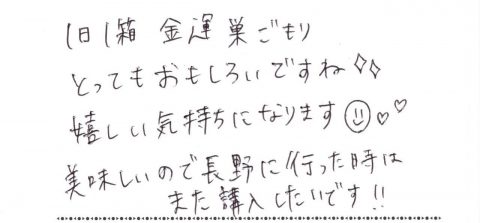 1日1箱 金運 巣ごもり
とってもおもしろいですね✧✧
嬉しい気持ちになります☺♡♡
美味しいので長野に行った時は
また購入したいです!!